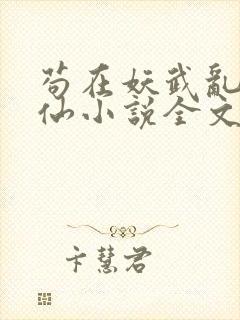 苟在妖武亂
仙小說全文
卞慧君